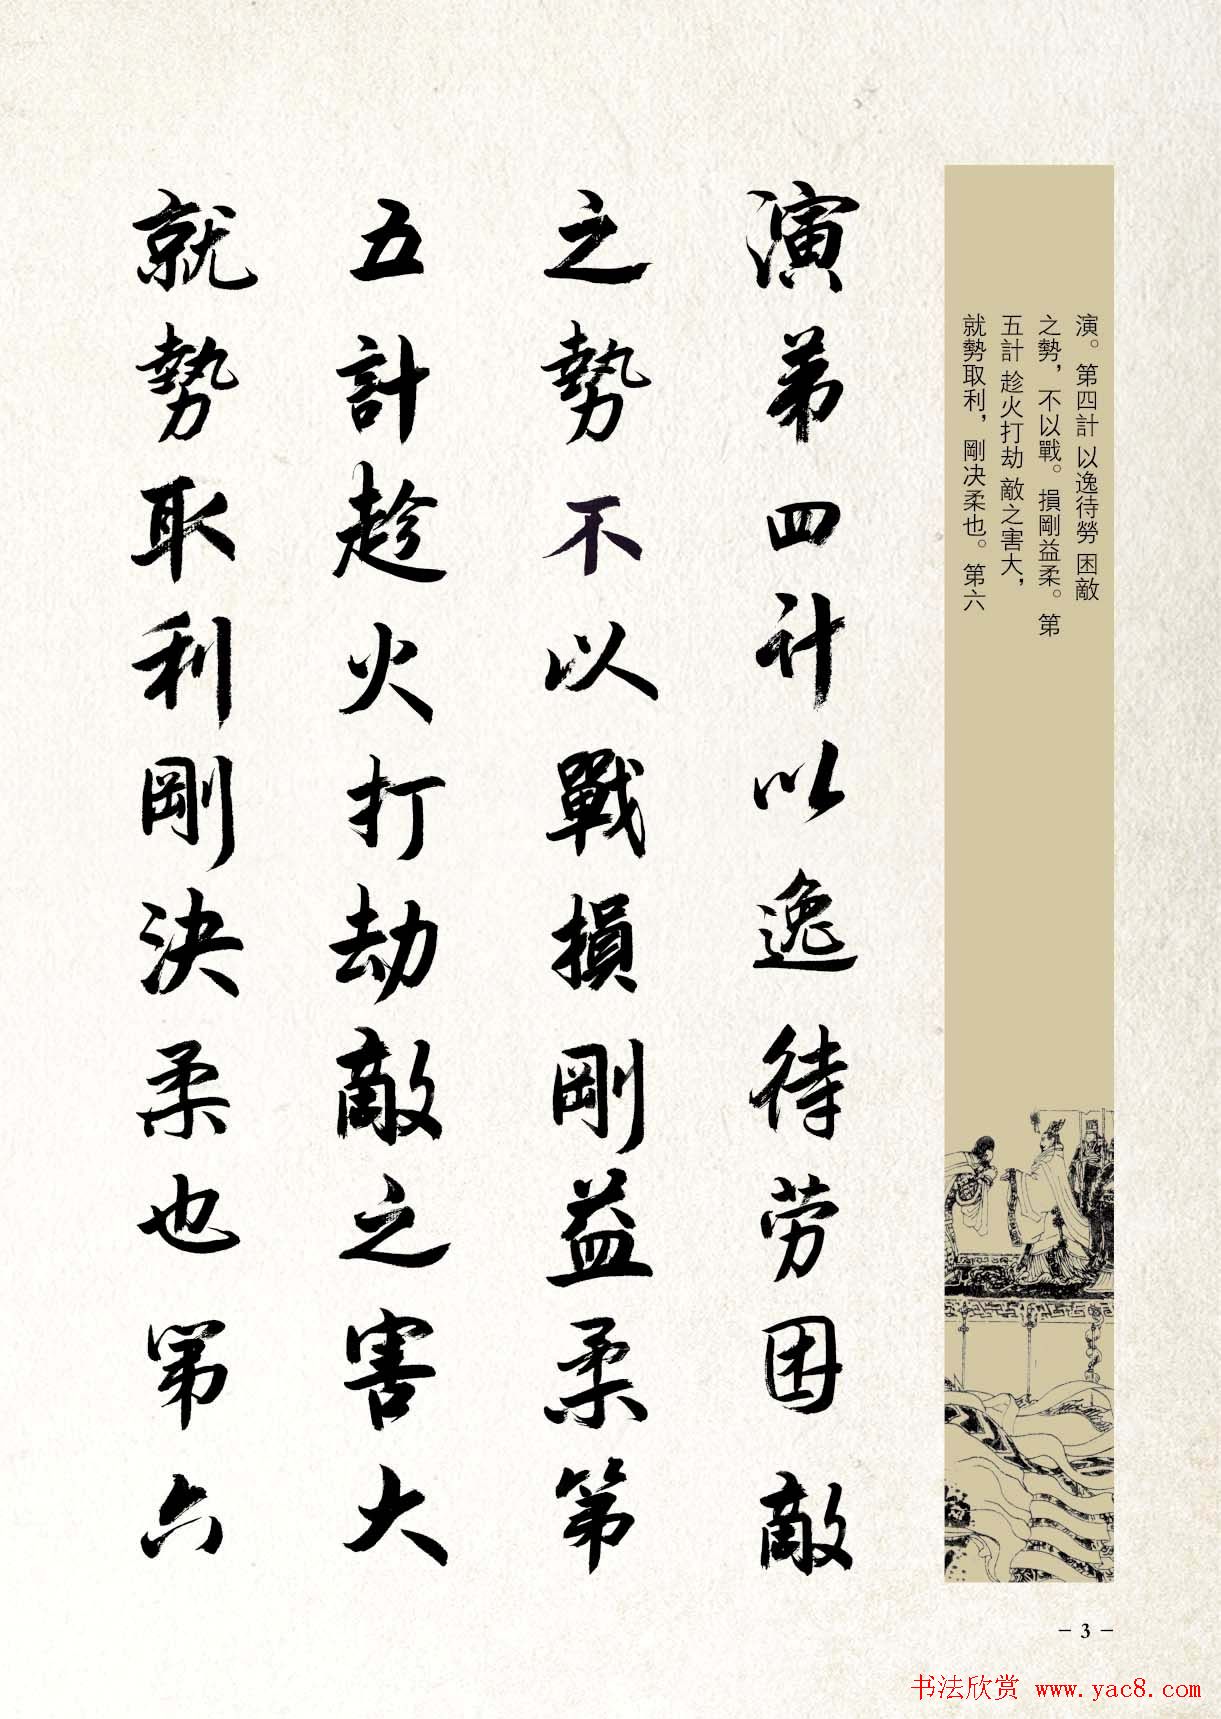 演。第四計 以逸待勞 困敵
之勢，不以戰。損剛益柔。第
五計 趁火打劫 敵之害大，
就勢取利，剛决柔也。第六
演第四计以逸待劳困敵
之勢不以戰損剛益柔第
五計趁火打劫敵之害大
就勢取利剛決柔也第六
- 3 -
书法欣赏 www.yac8.com